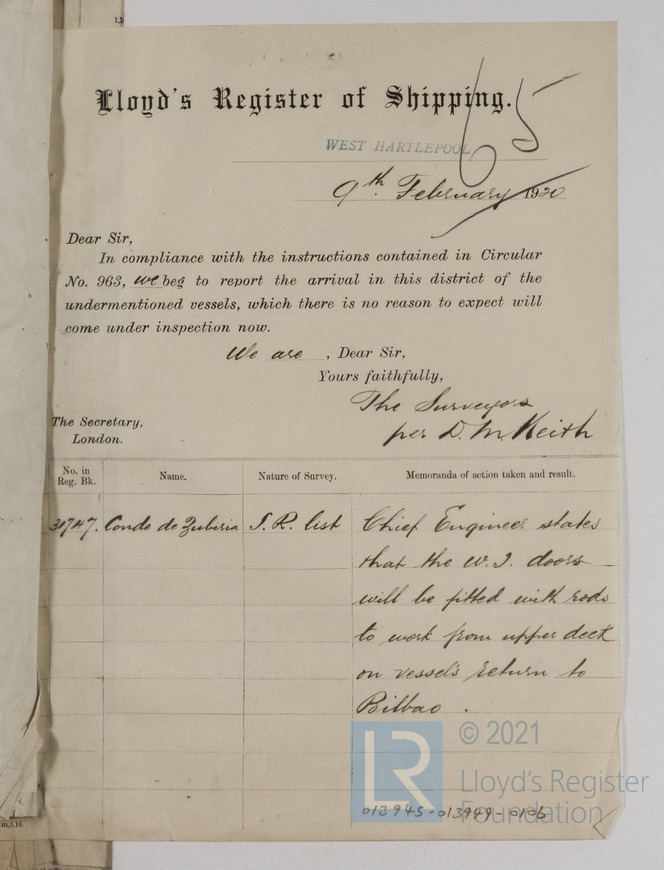 Lloyd's Register of Shipping.
65
WEST HARTLEPOOL
9th February 1920
Dear Sir,
In compliance with the instructions contained in Circular
No. 963, we beg to report the arrival in this district of the
undermentioned vessels, which there is no reason to expect will
come under inspection now.
We are , Dear Sir,
Yours faithfully,
The Surveyors
per D. M. Keith
The Secretary,
London.
No. in
Reg. Bk.
Name.
Nature of Survey.
Memoranda of action taken and result.
31747. Conde de Zubiria S. R. list Chief Engineer states
that the W. T. doors
will be fitted with rods
to work from upper deck
on vessel's return to
Bilbao .
LR
© 2021
Lloyd's Register
Foundation
013945-013949-0105